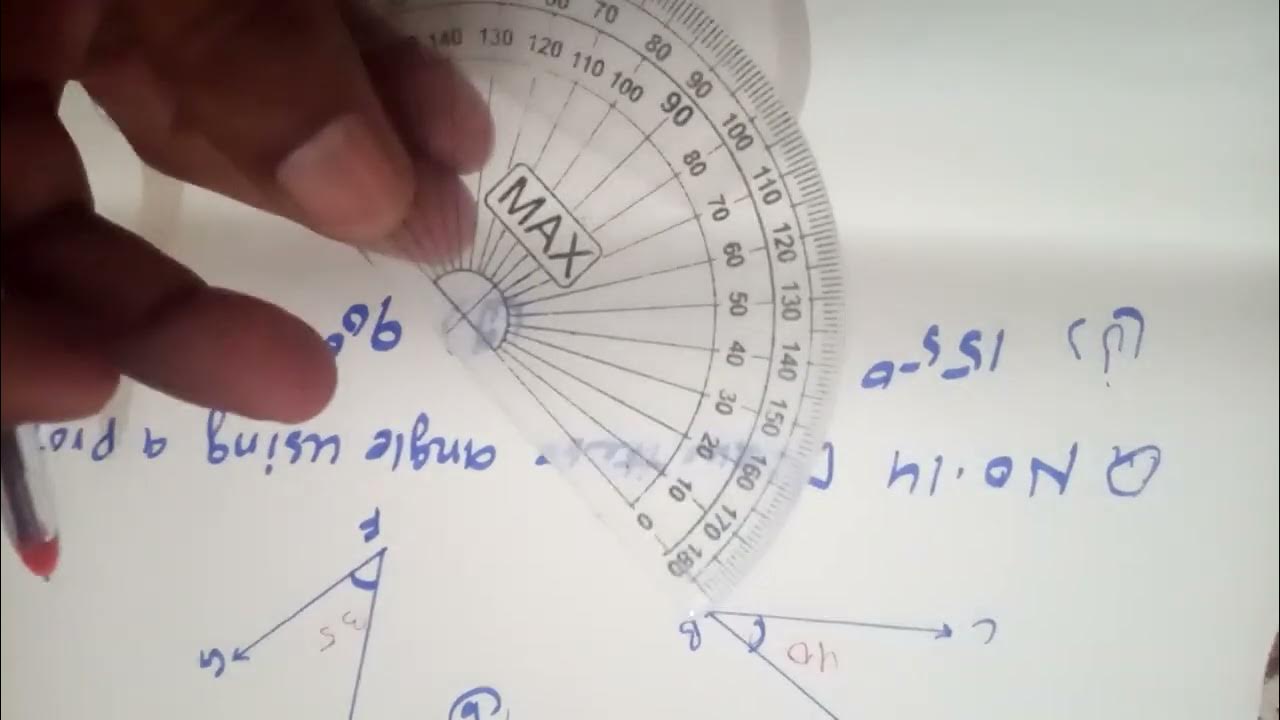 (b)
40
C
B
35
G
F
Q No.14
angle using a Pro
(i) 155° 90°
MAX
70 80 90 100 110 120 130 140 150 160 170 180
140 130 120 110 100 90 80 70 60 50 40 30 20 10 0